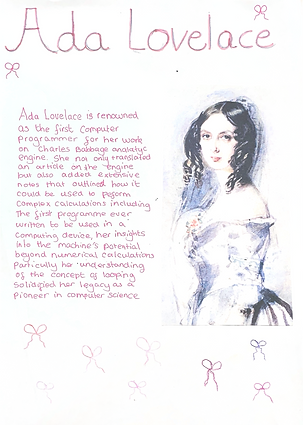 Ada Lovelace
Ada Lovelace is renowned
as the first Computer
programmer for her work
on Charles Babbage analatic
engine. She not only translated
an article on the engine
but also added extensive
notes that outlined how it
could be used to peform
complex calculations including
the first programme ever
written to be used in a
computing device, her insights
into the machine's potential
beyond numerical calculations
Particully her understanding
of the concept of looping
solidified her legacy as a
pioneer in computer science